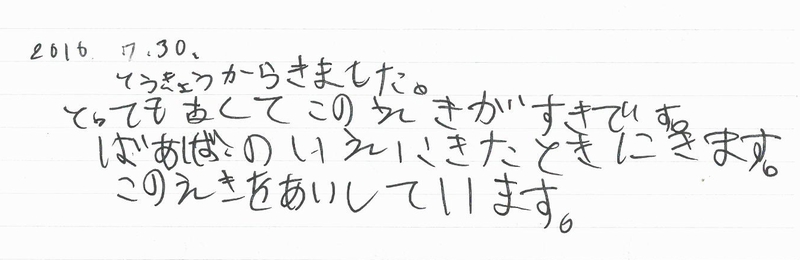 2016 7.30.
とうきょうからきました。
とっても古くてこのえきがすきです。
ばあばのいえにきたときにきます。
このえきをあいしています。